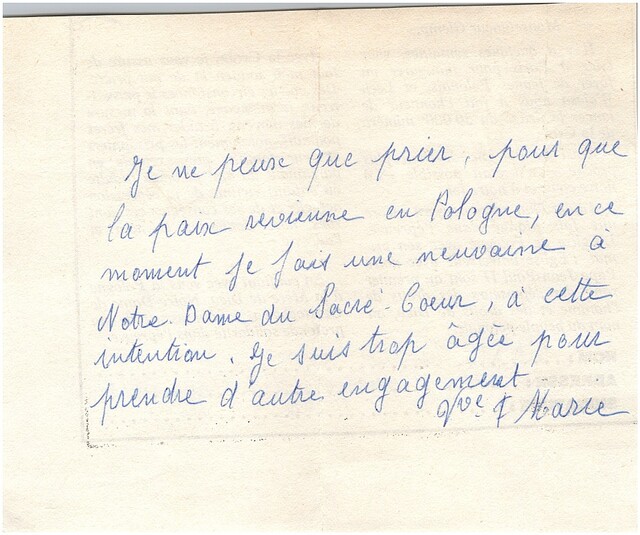 Je ne peux que prier, pour que
la paix revienne en Pologne, en ce
moment je fais une neuvaine à
Notre Dame du Sacré-Coeur, à cette
intention. Je suis trop âgée pour
prendre d'autre engagement
Vve